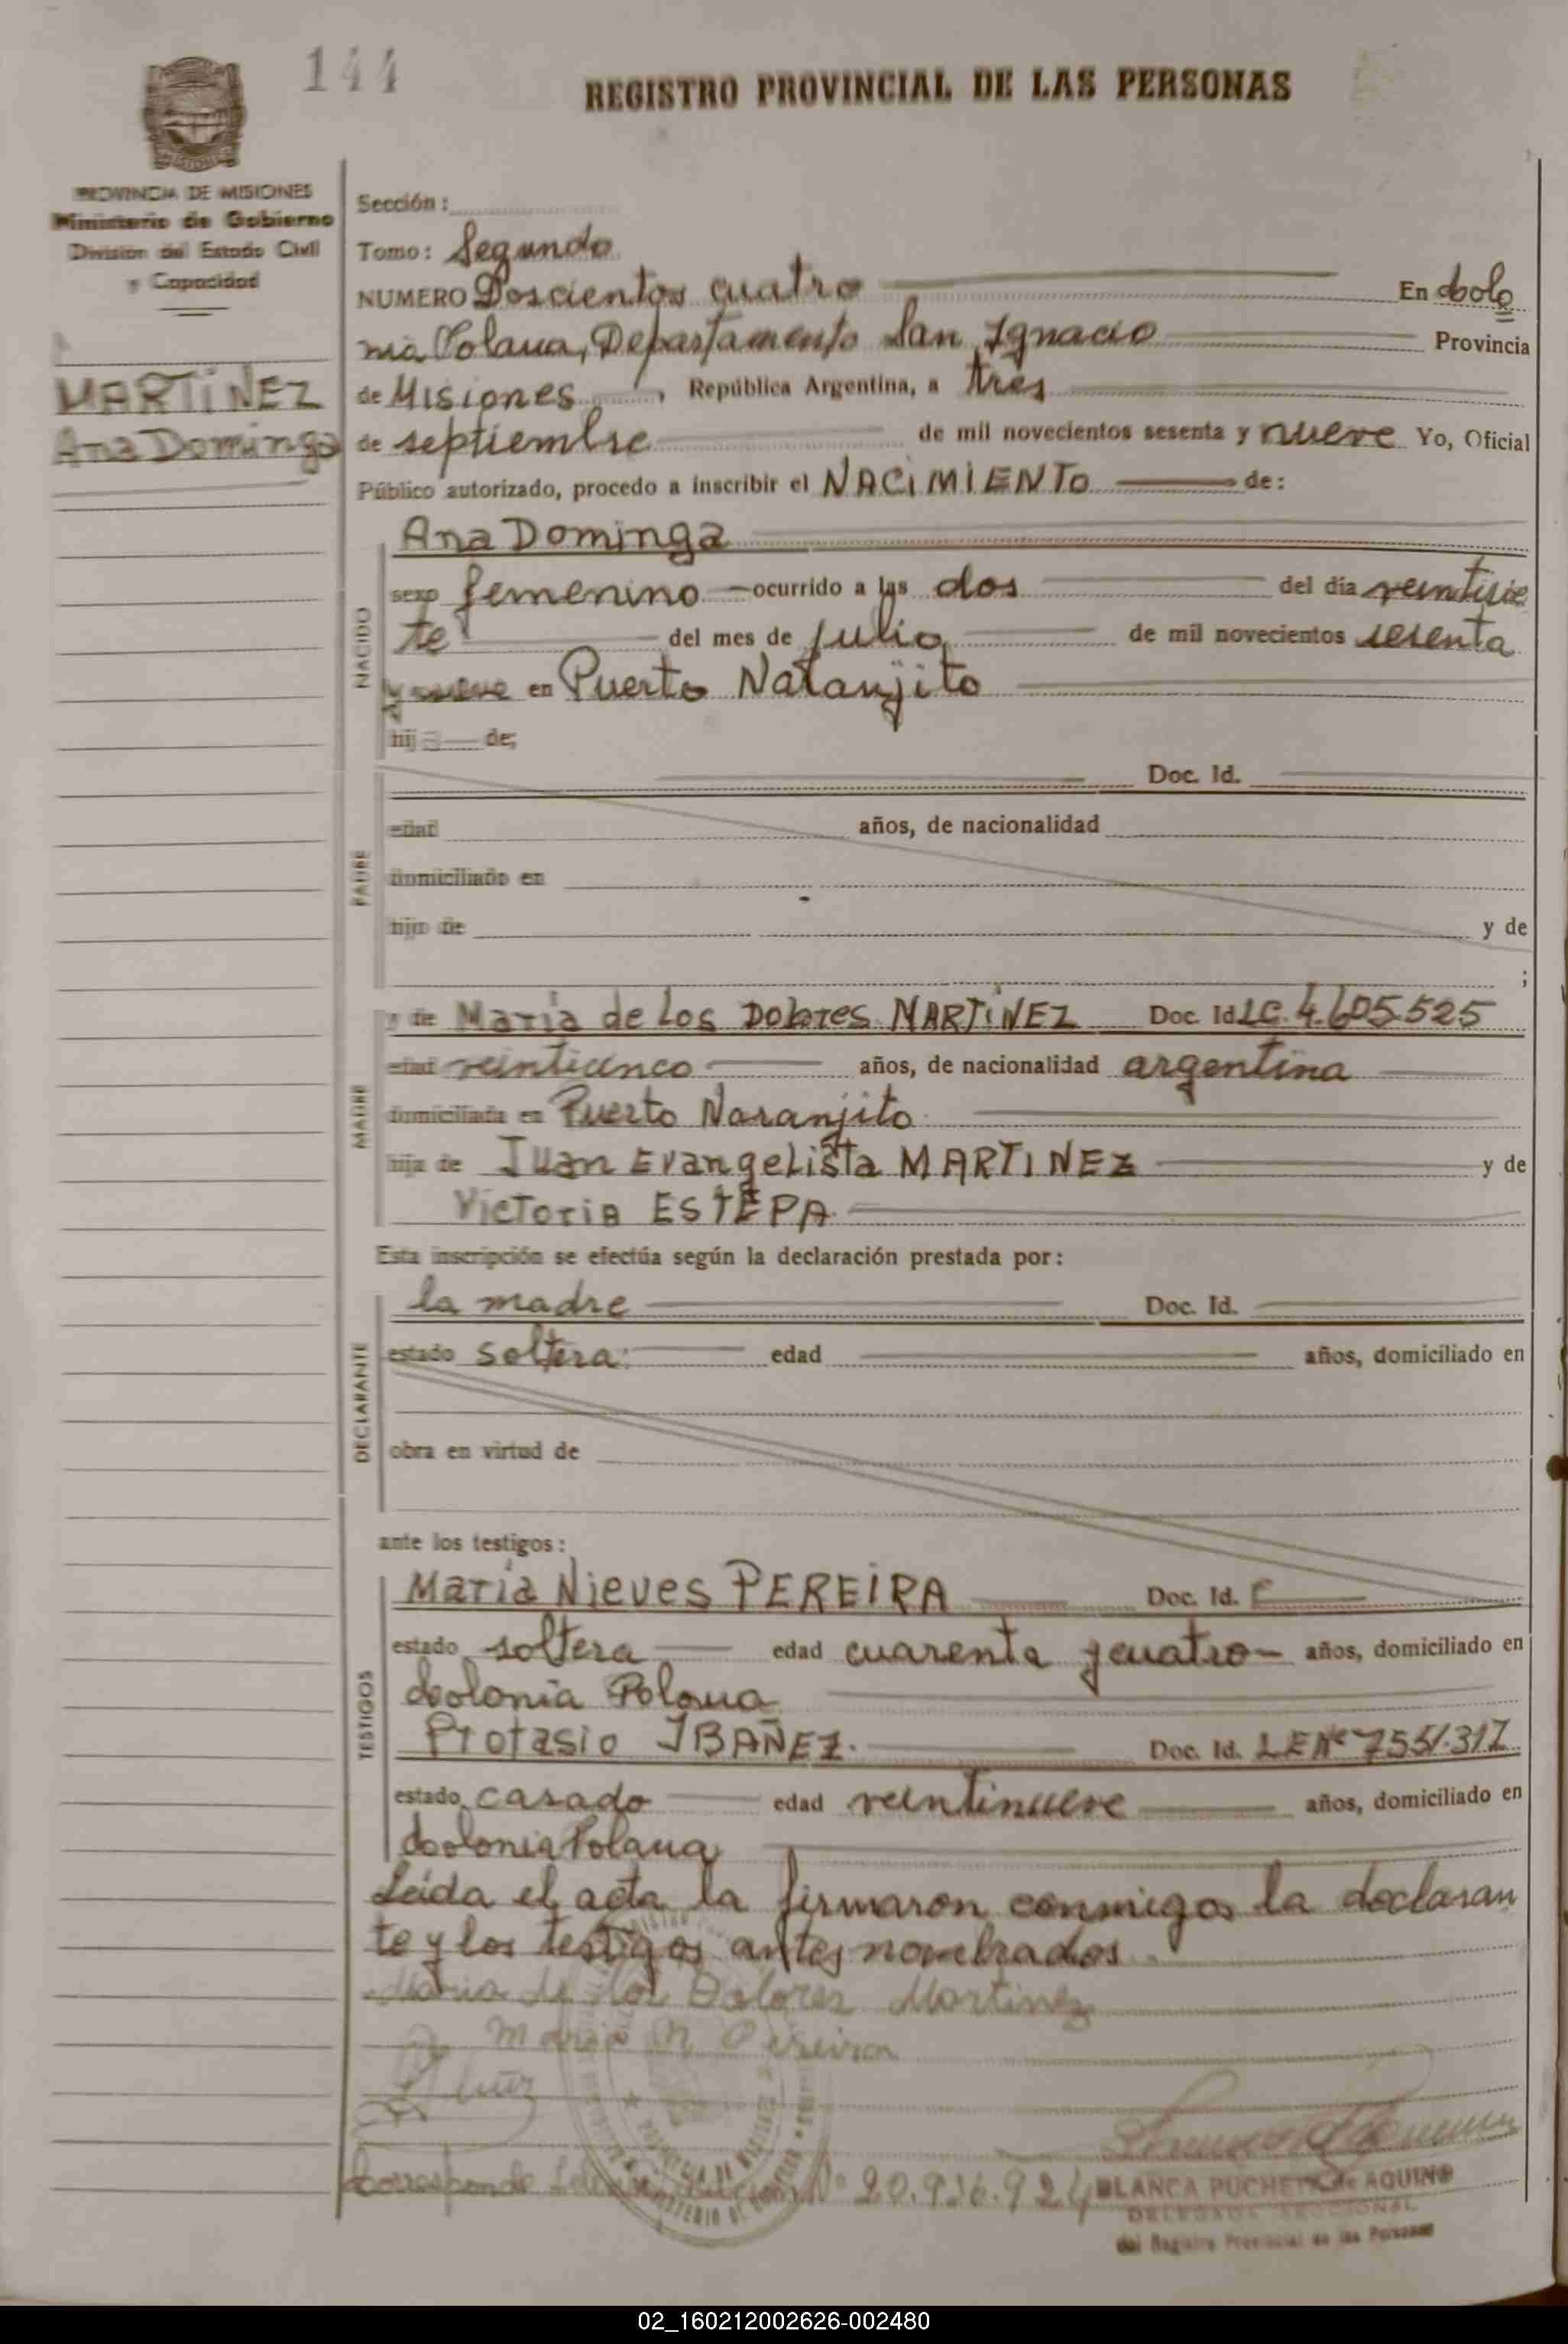 144
REGISTRO PROVINCIAL DE LAS PERSONAS
PROVINCIA DE MISIONES
Ministerio de Gobierno
División del Estado Civil
y Capacidad
MARTiNEZ
Ana Dominga
Sección:
Tomo: Segundo
NUMERO Doscientos cuatro En Colo
nia Polana, Departamento San Ignacio Provincia
de Misiones, República Argentina, a tres
de septiembre de mil novecientos sesenta y nueve Yo, Oficial
Público autorizado, procedo a inscribir el NACiMiENTo de:
NACIDO
Ana Dominga
sexo femenino ocurrido a las dos del día veintisie
te del mes de julio de mil novecientos sesenta
y nueve en Puerto Naranjito
hija de;
PADRE
Doc. Id.
edad años, de nacionalidad
domiciliado en
hijo de y de
;
MADRE
y de María de los Dolores MARTiNEZ Doc. Id LC. 4.605.525
edad veinticinco años, de nacionalidad argentina
domiciliada en Puerto Naranjito
hija de Juan Evangelista MARTINEZ y de
Victoria ESTEPA
Esta inscripción se efectúa según la declaración prestada por:
DECLARANTE
la madre Doc. Id.
estado soltera edad años, domiciliado en
obra en virtud de
ante los testigos:
TESTIGOS
María Nieves PEREiRA Doc. Id.
estado soltera edad cuarenta y cuatro años, domiciliado en
Colonia Polana
Protasio IBAÑEZ. Doc. Id. LE Nº 7.551.317
estado casado edad veintinueve años, domiciliado en
Colonia Polana
Leída el acta la firmaron conmigo la declaran
te y los testigos antes nombrados.
Maria de los Dolores Martinez
Maria N Pereira
Corresponde Nº 20.936.924
BLANCA PUCHETA de AQUINO
DELEGADA SECCIONAL
del Registro Provincial de las Personas
02_160212002626-002480